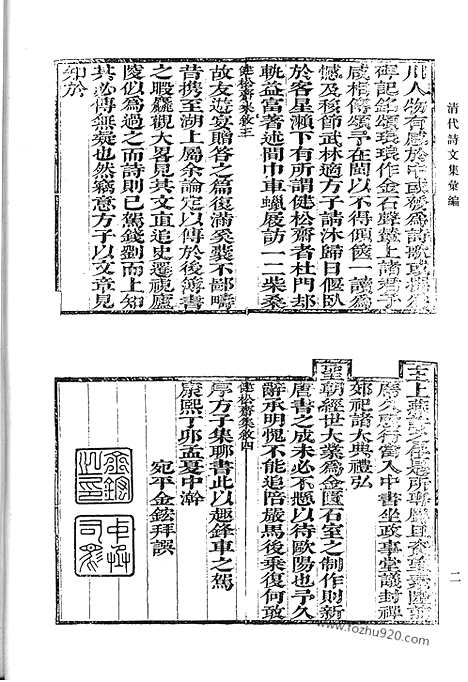 清代詩文集彙編
川人物有感於中或發爲詩歌或撰爲
碑記銘頌琅琅作金石聲臺上諸君子
咸相傳頌予在閩以不得傾囊一讀爲
憾及移節武林適方子請沐歸日偃臥
於客星瀨下有所謂健松齋者杜門却
軌益富著述間巾車蠟屐訪一二柴桑
健松齋集敘 三
故友遊宴贈答之篇復滿奚囊不鄙疇
昔攜至湖上屬余論定以傳於後簿書
之暇縱觀大畧見其文直追史遷視廬
陵似爲過之而詩則已駕錢劉而上知
其必傳無疑也然竊意方子以文章見
知於
主上
席公所行當入中書坐政事堂議封禪
郊祀諸大典禮弘
聖朝經世大業爲金匱石室之制作則新
唐書之成未必不懸以待歐陽也予久
辭承明愧不能追陪嚴馬後乘復何敢
健松齋集敘 四
序方子集聊書此以趣鋒車之駕
康熙丁卯孟夏中澣
宛平金鋐拜譔
金鋐之印
二
www.fozhu920.com